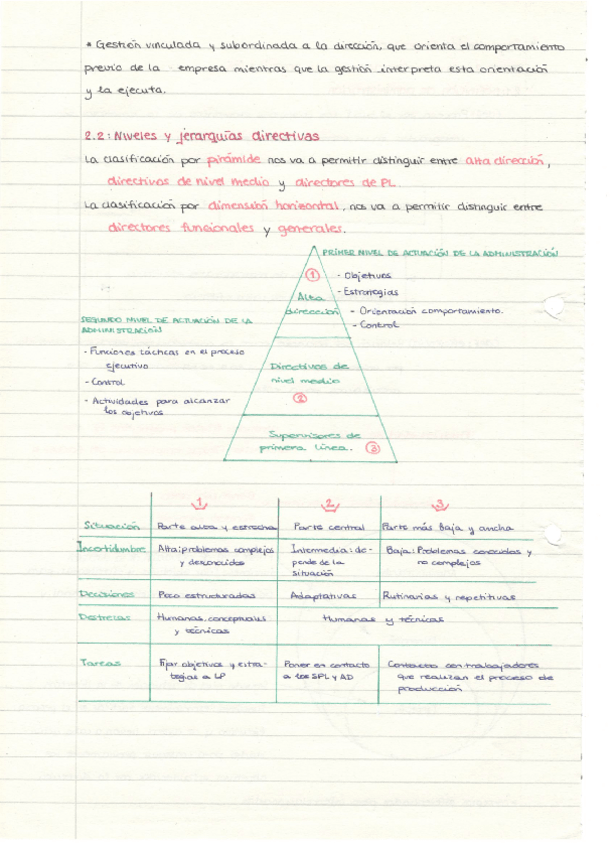 * Gestión vinculada y subordinada a la dirección, que orienta el comportamiento
previo de la empresa mientras que la gestión interpreta esta orientación
y la ejecuta.
2.2: Niveles y jerarquías directivas
La clasificación por pirámide nos va a permitir distinguir entre alta dirección,
directivos de nivel medio y directores de PL.
La clasificación por dimensión horizontal, nos va a permitir distinguir entre
directores funcionales y generales.
PRIMER NIVEL DE ACTUACIÓN DE LA ADMINISTRACIÓN
1
- Objetivos
- Estrategias
Alta
dirección
- Orientación comportamiento.
- Control
SEGUNDO NIVEL DE ACTUACIÓN DE LA
ADMINISTRACIÓN
- Funciones tácticas en el proceso
ejecutivo
- Control
- Actividades para alcanzar
los objetivos
Directivos de
nivel medio
2
Supervisores de
primera línea.
3
1 2 3
Situación Parte alta y estrecha Parte central Parte más baja y ancha
Incertidumbre Alta: problemas complejos Intermedia: de- Baja: Problemas conocidos y
y desconocidos pende de la no complejos
situación
Decisiones Poco estructuradas Adaptativas Rutinarias y repetitivas
Destrezas Humanas, conceptuales Humanas y técnicas
y técnicas
Tareas Fijar objetivos y estra- Poner en contacto Contacto con trabajadores
tegias a LP a los SPL y AD que realizan el proceso de
producción